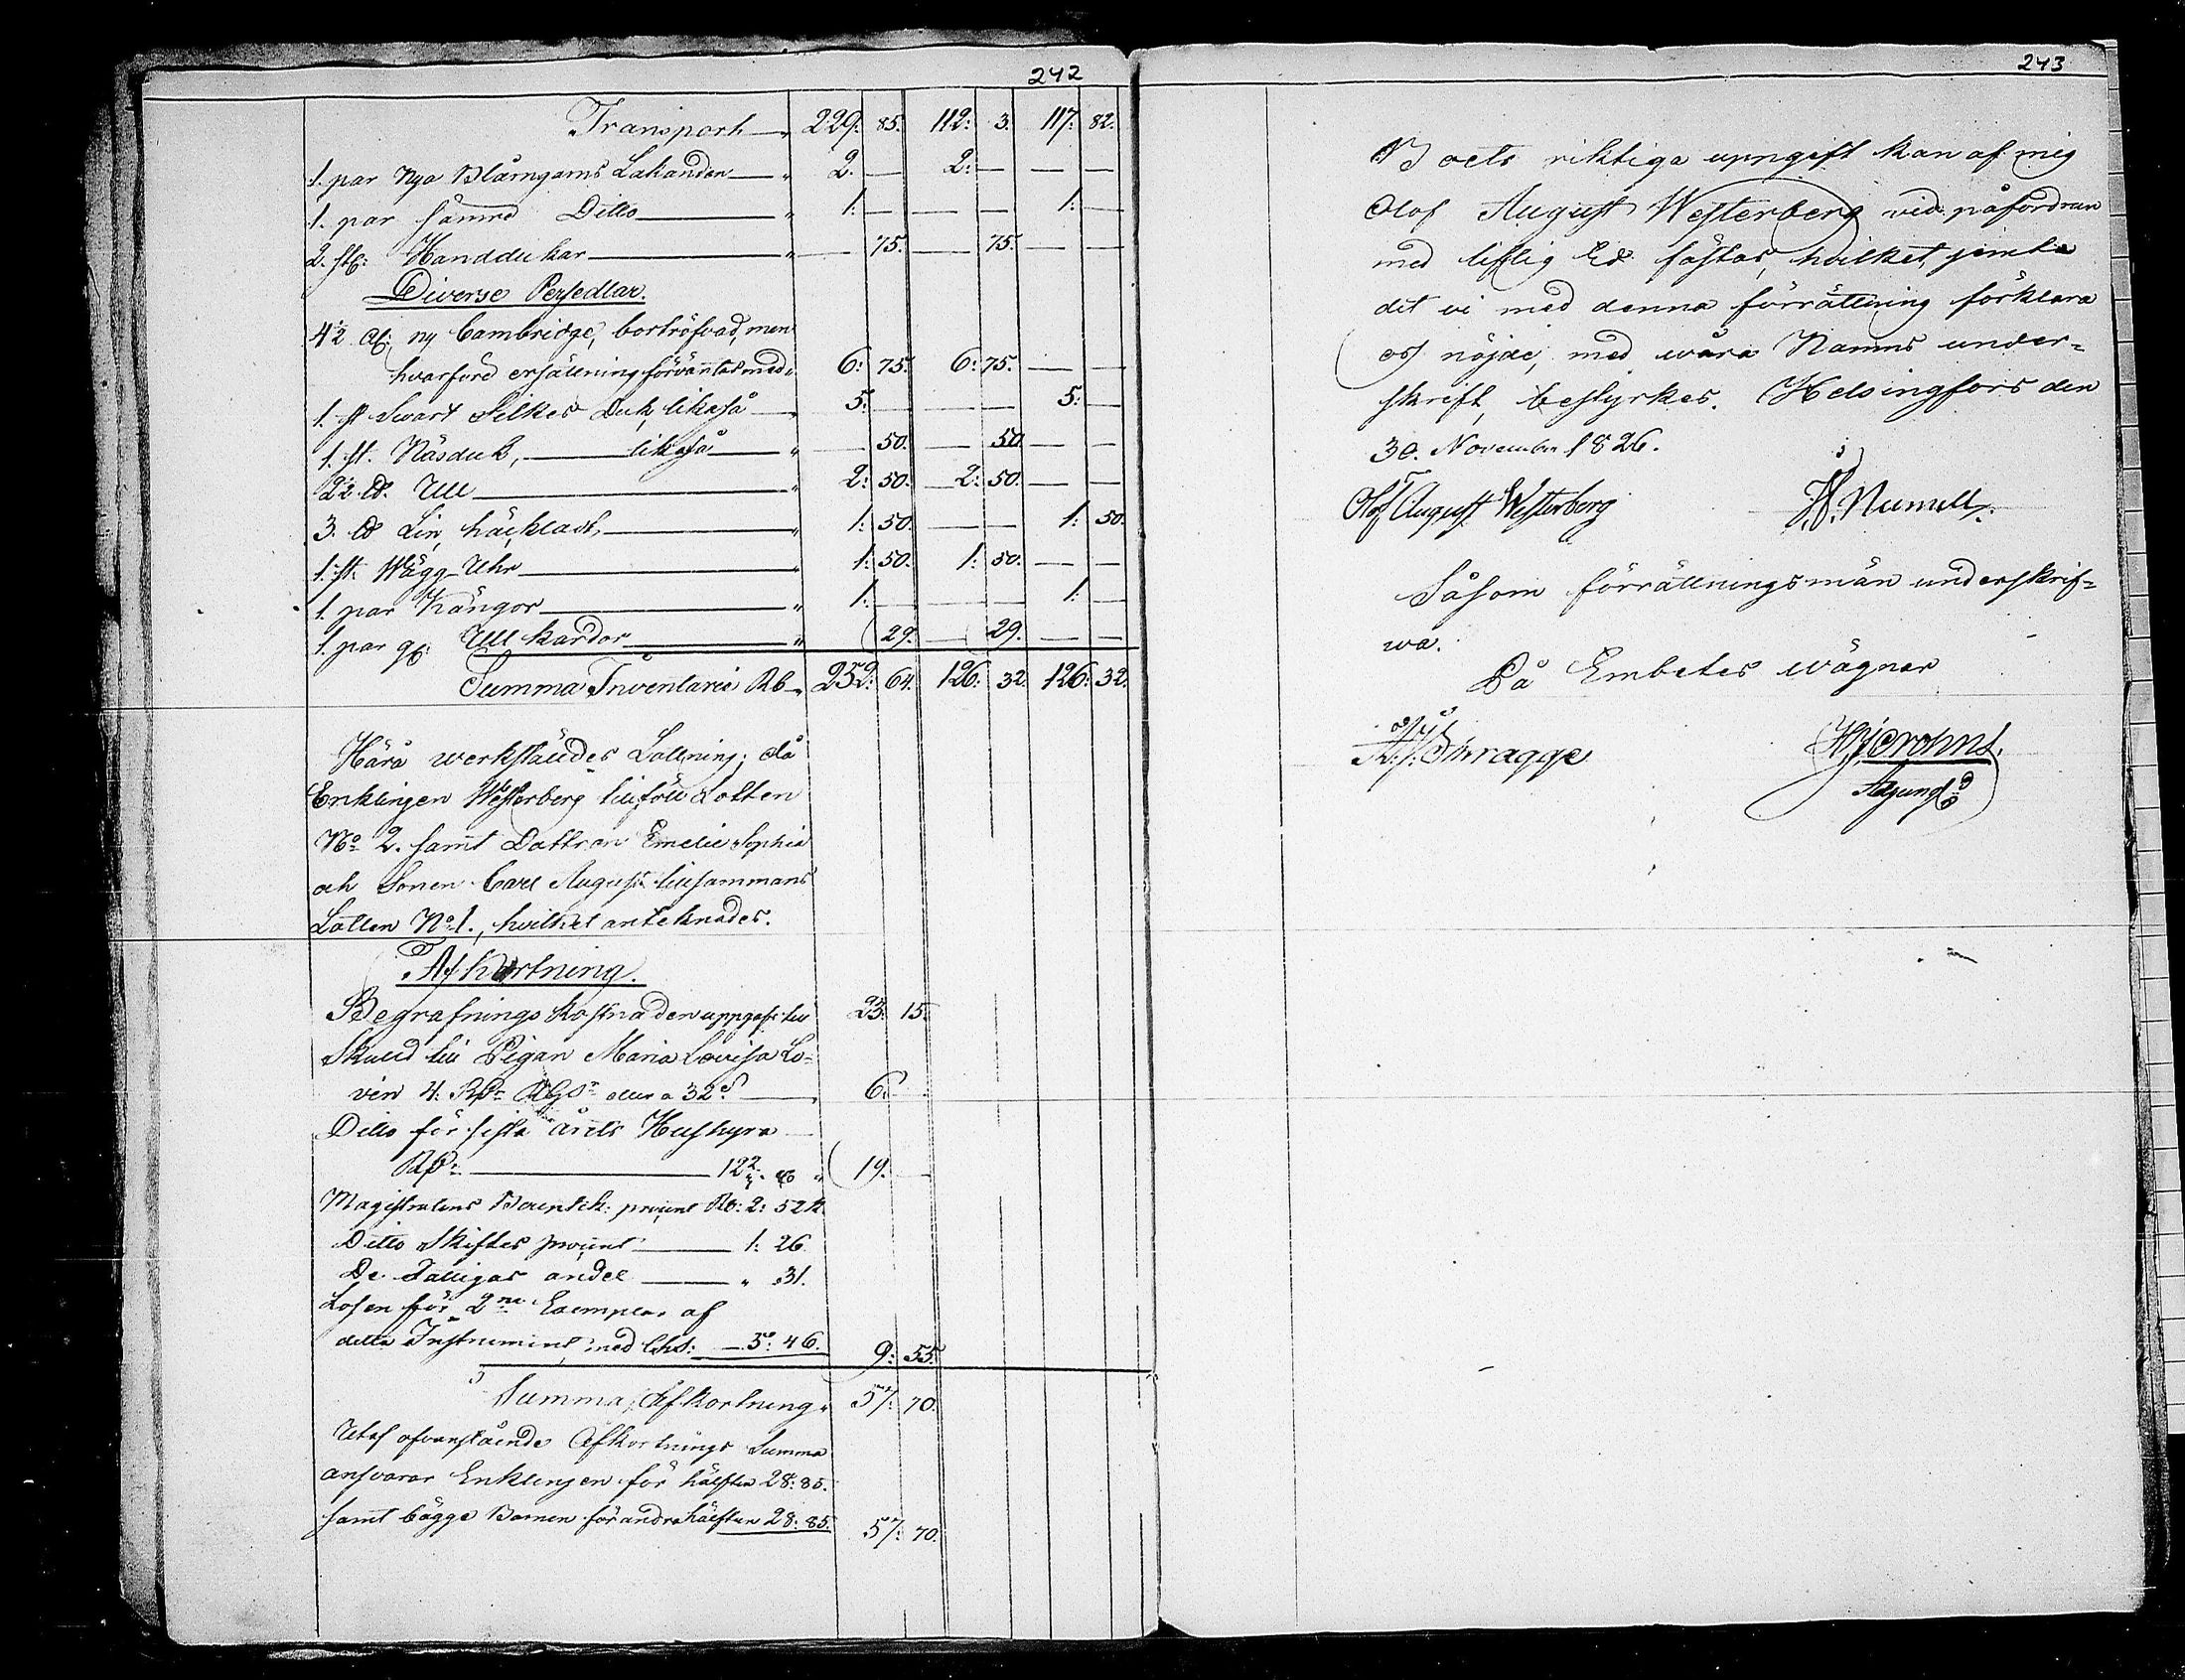 242
Transport 229: 85. 112: 3. 117: 82.
1. par Nya Blårngarns Lakanden 2. — 2: — — —
1. par sämre Ditto 1: — — — 1: —
2. st: Handdukar — 75. — 75. — —
Diverse Persedlar.
4½ al: ny Cambridge, bortröfvad, men
hvarföre ersättning förväntas med 6: 75. 6: 75. — —
1. st Svart Silkes Duk, likaså 5: — — — 5: —
1. st. Näsduk, likaså — 50. — 50. — —
2½ ℔. Ull 2: 50. 2: 50. — —
3. ℔ Lin, häckladt, 1: 50. — — 1: 50.
1. st. Wägg Uhr 1: 50. 1: 50. — —
1 par Kängor 1: — — — 1: —
1. par gl: Ull kardor 29. — 29. — —
Summa Inventarii Rb 252: 64. 126: 32. 126: 32.
Härå werkställdes Lottning; då
Enklingen Westerberg tillföll Lotten
No 2. samt Dottren Emelie Sophia
och Sonen Carl August tillsammans
Lotten No 1., hvilket anteknades.
Afkortning.
Begrafnings kostnaden uppgafs till 23: 15.
Skuld till Pigan Maria Lovisa Lo-
vén 4: Rdr RGdr 6. —
Ditto för sista årets Hushyra
Rdr 12 19. —
Magistratens Bouptek: procent Rb: 2: 52 k.
Ditto Skiftes procent 1: 26.
De Fattigas andel " 31.
Lösen för 2ne Exemplar af
detta Instrument med Cht: 5: 46. 9: 55.
Summa Afkortning 57: 70.
Utaf ofvanstående Afkortnings Summa
ansvarar Enklingen för hälften 28: 85.
samt bägge Barnen för andra hälften 28: 85. 57: 70.
243
Boets riktiga uppgift kan af mig
Olof August Westerberg vid påfordran
med liflig Ed fästas, hvilket, jemte
det vi med denna förrättning förklara
oss nöjde, med wåra Namns under-
skrift, bestyrkes. Helsingfors den
30. November 1826.
Olof August Westerberg Numell.
Såsom förrättningsmän underskrif-
wa.
På Embetes wägnar